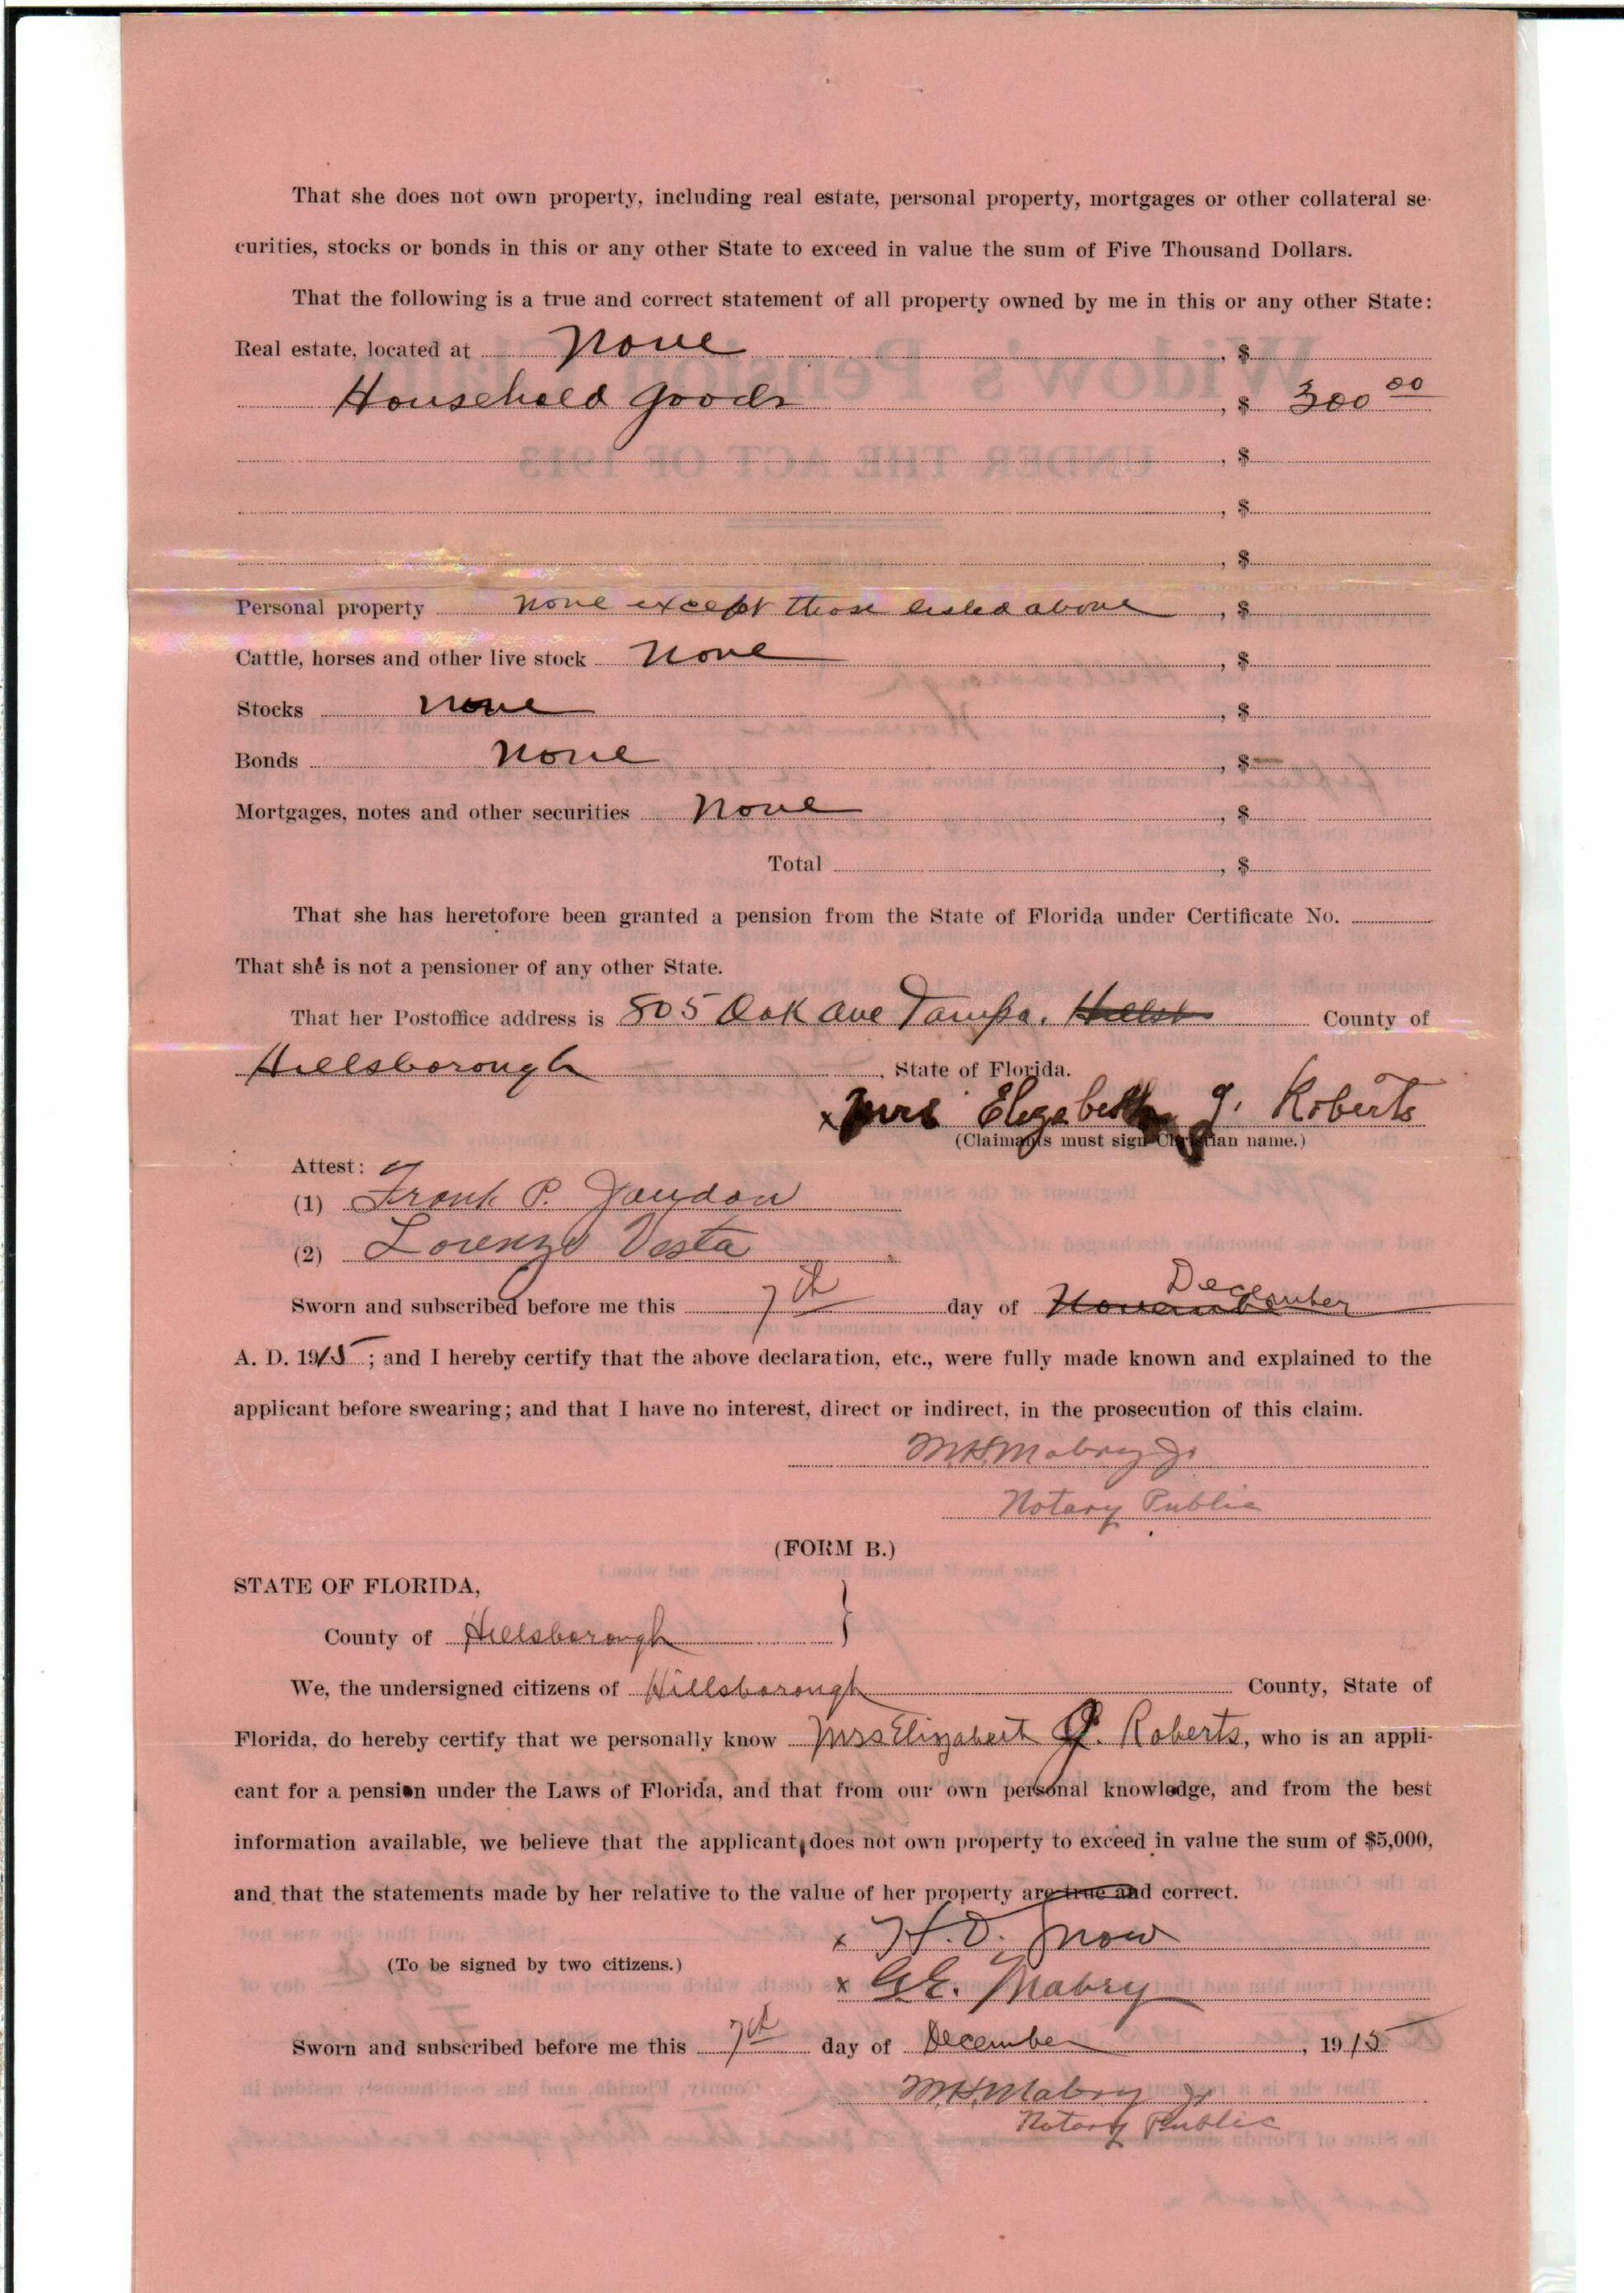 That she does not own property, including real estate, personal property, mortgages or other collateral se-
curities, stocks or bonds in this or any other State to exceed in value the sum of Five Thousand Dollars.
That the following is a true and correct statement of all property owned by me in this or any other State:
Real estate, located at None , $
Household goods , $ 300 00
, $
, $
, $
Personal property none except those listed above , $
Cattle, horses and other live stock None , $
Stocks none , $
Bonds None , $
Mortgages, notes and other securities None , $
Total , $
That she has heretofore been granted a pension from the State of Florida under Certificate No.
That she is not a pensioner of any other State.
That her Postoffice address is 805 Oak Ave Tampa. Hillsb County of
Hillsborough , State of Florida.
x Mrs Elizabeth J. Roberts
(Claimants must sign Christian name.)
Attest:
(1) Frank P.
(2) Lorenzo Vesta
December
Sworn and subscribed before me this 7th day of November
A. D. 1915 ; and I hereby certify that the above declaration, etc., were fully made known and explained to the
applicant before swearing; and that I have no interest, direct or indirect, in the prosecution of this claim.
M.H. Mabry Jr
Notary Public
(FORM B.)
STATE OF FLORIDA,
County of Hillsborough }
We, the undersigned citizens of Hillsborough County, State of
Florida, do hereby certify that we personally know Mrs Elizabeth J. Roberts, who is an appli-
cant for a pension under the Laws of Florida, and that from our own personal knowledge, and from the best
information available, we believe that the applicant does not own property to exceed in value the sum of $5,000,
and that the statements made by her relative to the value of her property are true and correct.
x H. D. Snow
(To be signed by two citizens.)
x G.E. Mabry
Sworn and subscribed before me this 7th day of December , 1915
M.H. Mabry Jr
Notary Public